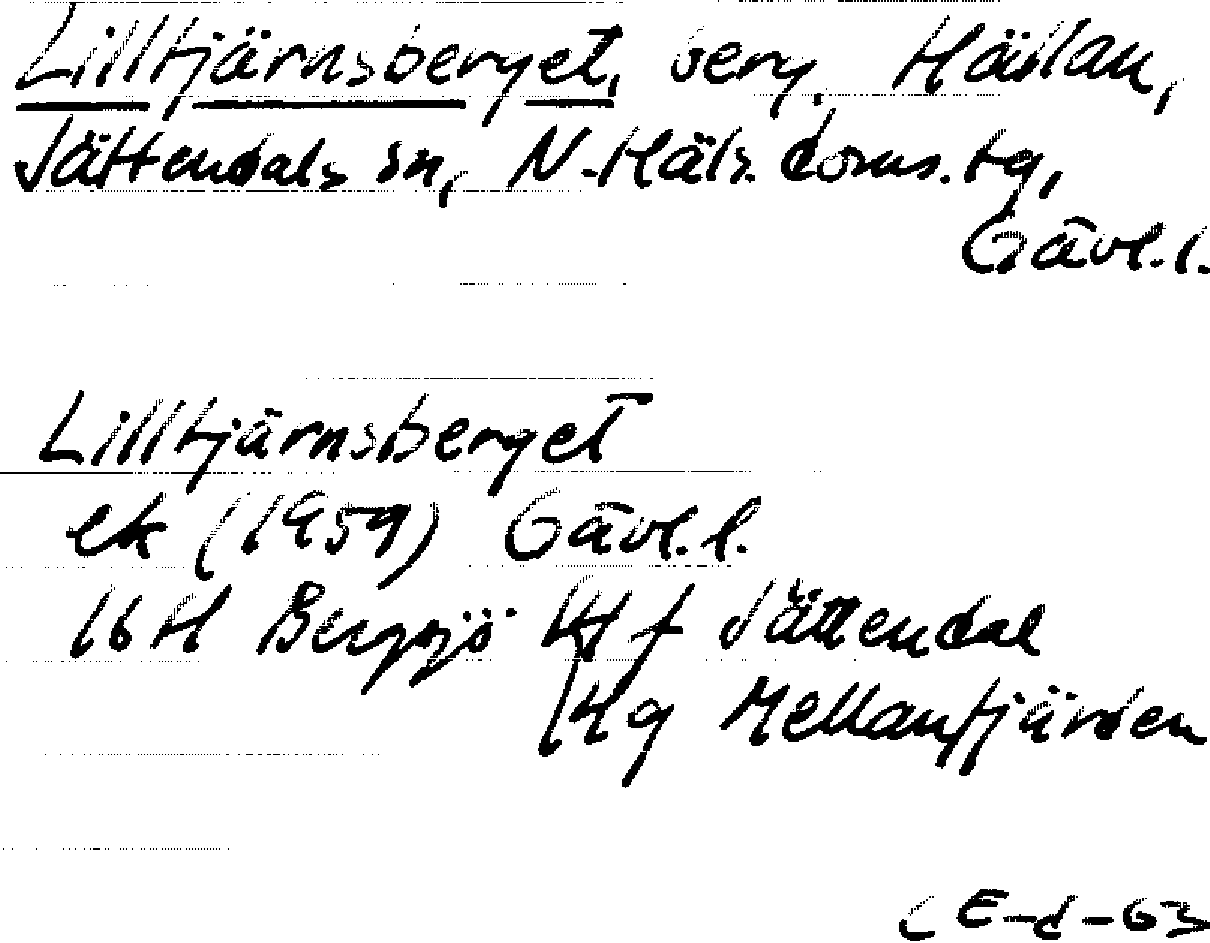 Lilltjärnsberget, berg. Hällan,
Jättendals sn, N. Häls. doms. tg,
Gävl. l.
Lilltjärnsberget
ek (1959) Gävl. l.
16 H Bergsjö 4 f Jättendal
4 g Mellanfjärden
CE-d-63